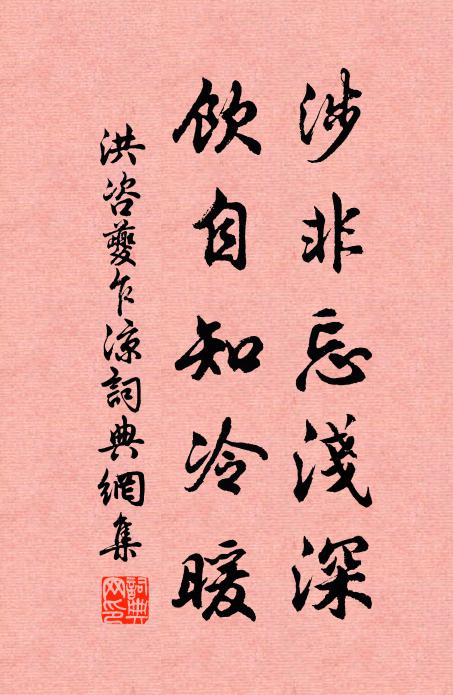 涉非忘淺深
飲自知冷暖
洪咨夔乍涼詞典網集
詞典网印